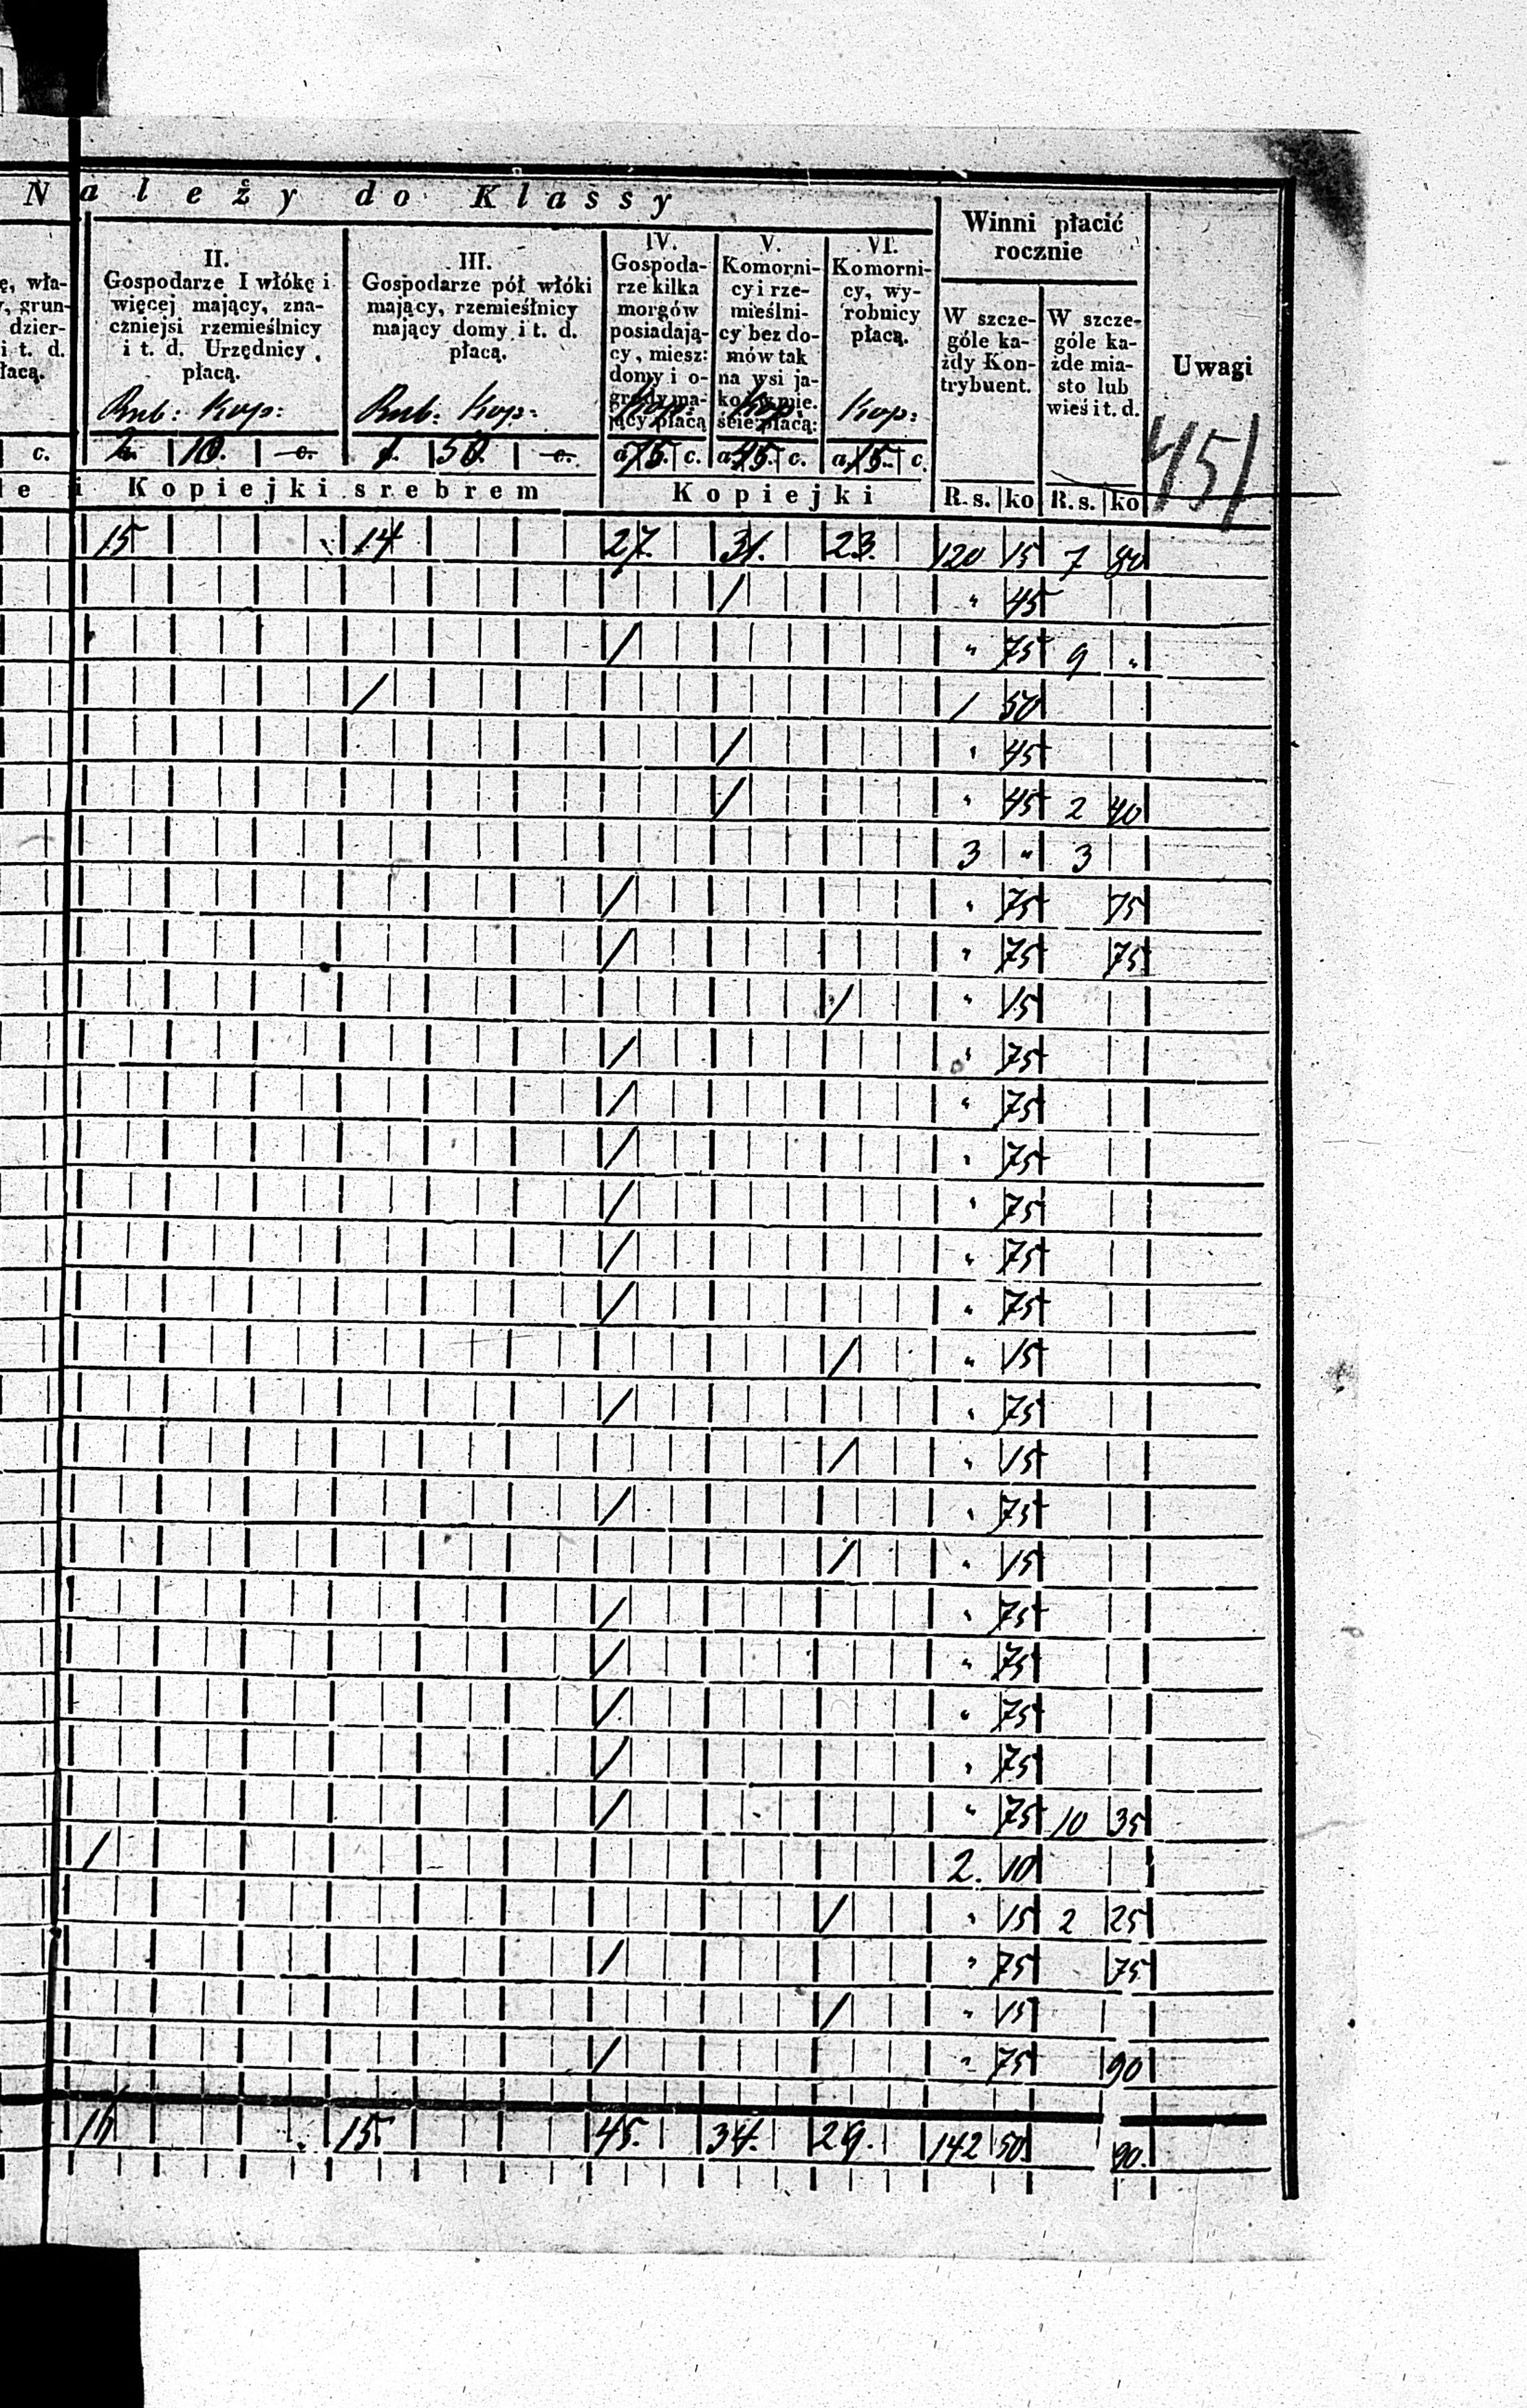 Należy do Klassy
ę, wła-
y, grun-
dzier-
i t. d.
łacą.
c.
II.
Gospodarze I włókę i
więcej mający, zna-
czniejsi rzemieślnicy
i t. d. Urzędnicy
płacą.
Rub: Kop:
2. 10. c.
III.
Gospodarze pół włóki
mający, rzemieślnicy
mający domy i t. d.
płacą.
Rub: Kop:
1. 50. c.
IV.
Gospoda-
rze kilka
morgów
posiadają-
cy, miesz:
domy i o-
grody ma-
jący płacą
Kop:
a 75. c.
V.
Komorni-
cy i rze-
mieślni-
cy bez do-
mów tak
na wsi ja-
ko w mie.
ście płacą:
Kop:
a 45. c.
VI.
Komorni-
cy, wy-
robnicy
płacą.
Kop:
a 15. c.
Winni płacić
rocznie
W szcze-
góle ka-
żdy Kon-
trybuent.
W szcze-
góle ka-
żde mia-
sto lub
wieś i t. d.
Uwagi
451
le i Kopiejki srebrem
Kopiejki
R. s. ko R. s. ko
15 14 27. 31. 23. 120 15 7 80
/ " 45
/ " 75 9 "
/ 1 50
/ " 45
/ " 45 2 40
3 " 3
/ " 75 75
/ " 75 75
/ " 15
/ " 75
/ " 75
/ " 75
/ " 75
/ " 75
/ " 75
/ " 15
/ " 75
/ " 15
/ " 75
/ " 15
/ " 75
/ " 75
/ " 75
/ " 75
/ " 75 10 35
/ 2. 10
/ " 15 2 25
/ " 75 75
/ " 15
/ " 75 90
16 15. 45. 34. 29. 142 50 90.